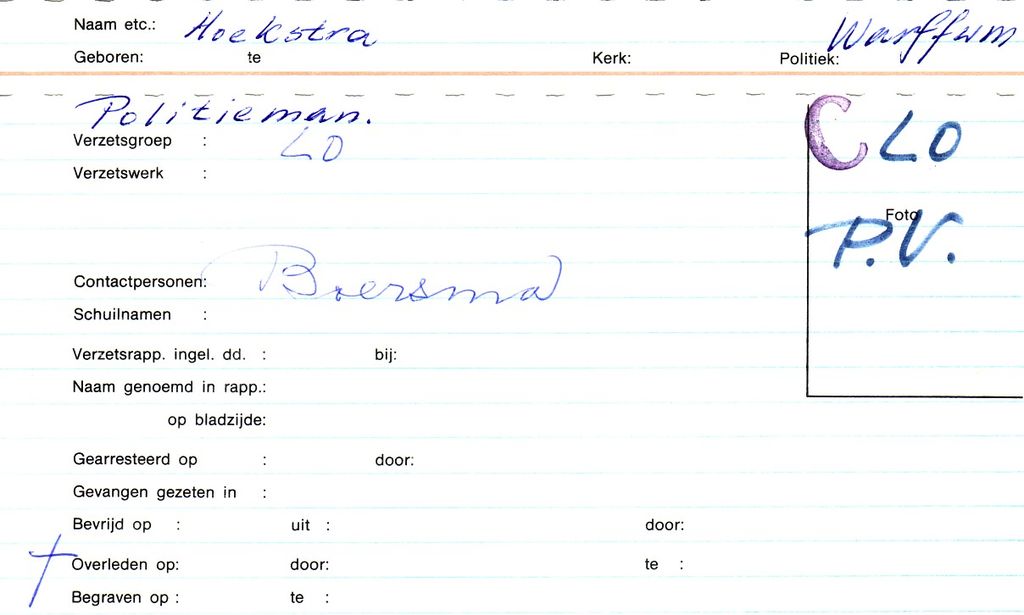 Naam etc.: Hoekstra Warffum
Geboren: te Kerk: Politiek:
Politieman.
Verzetsgroep : LO C LO
Verzetswerk :
Foto
P.V.
Contactpersonen: Boersma
Schuilnamen :
Verzetsrapp. ingel. dd. : bij:
Naam genoemd in rapp.:
op bladzijde:
Gearresteerd op : door:
Gevangen gezeten in :
Bevrijd op : uit : door:
† Overleden op: door: te :
Begraven op : te :